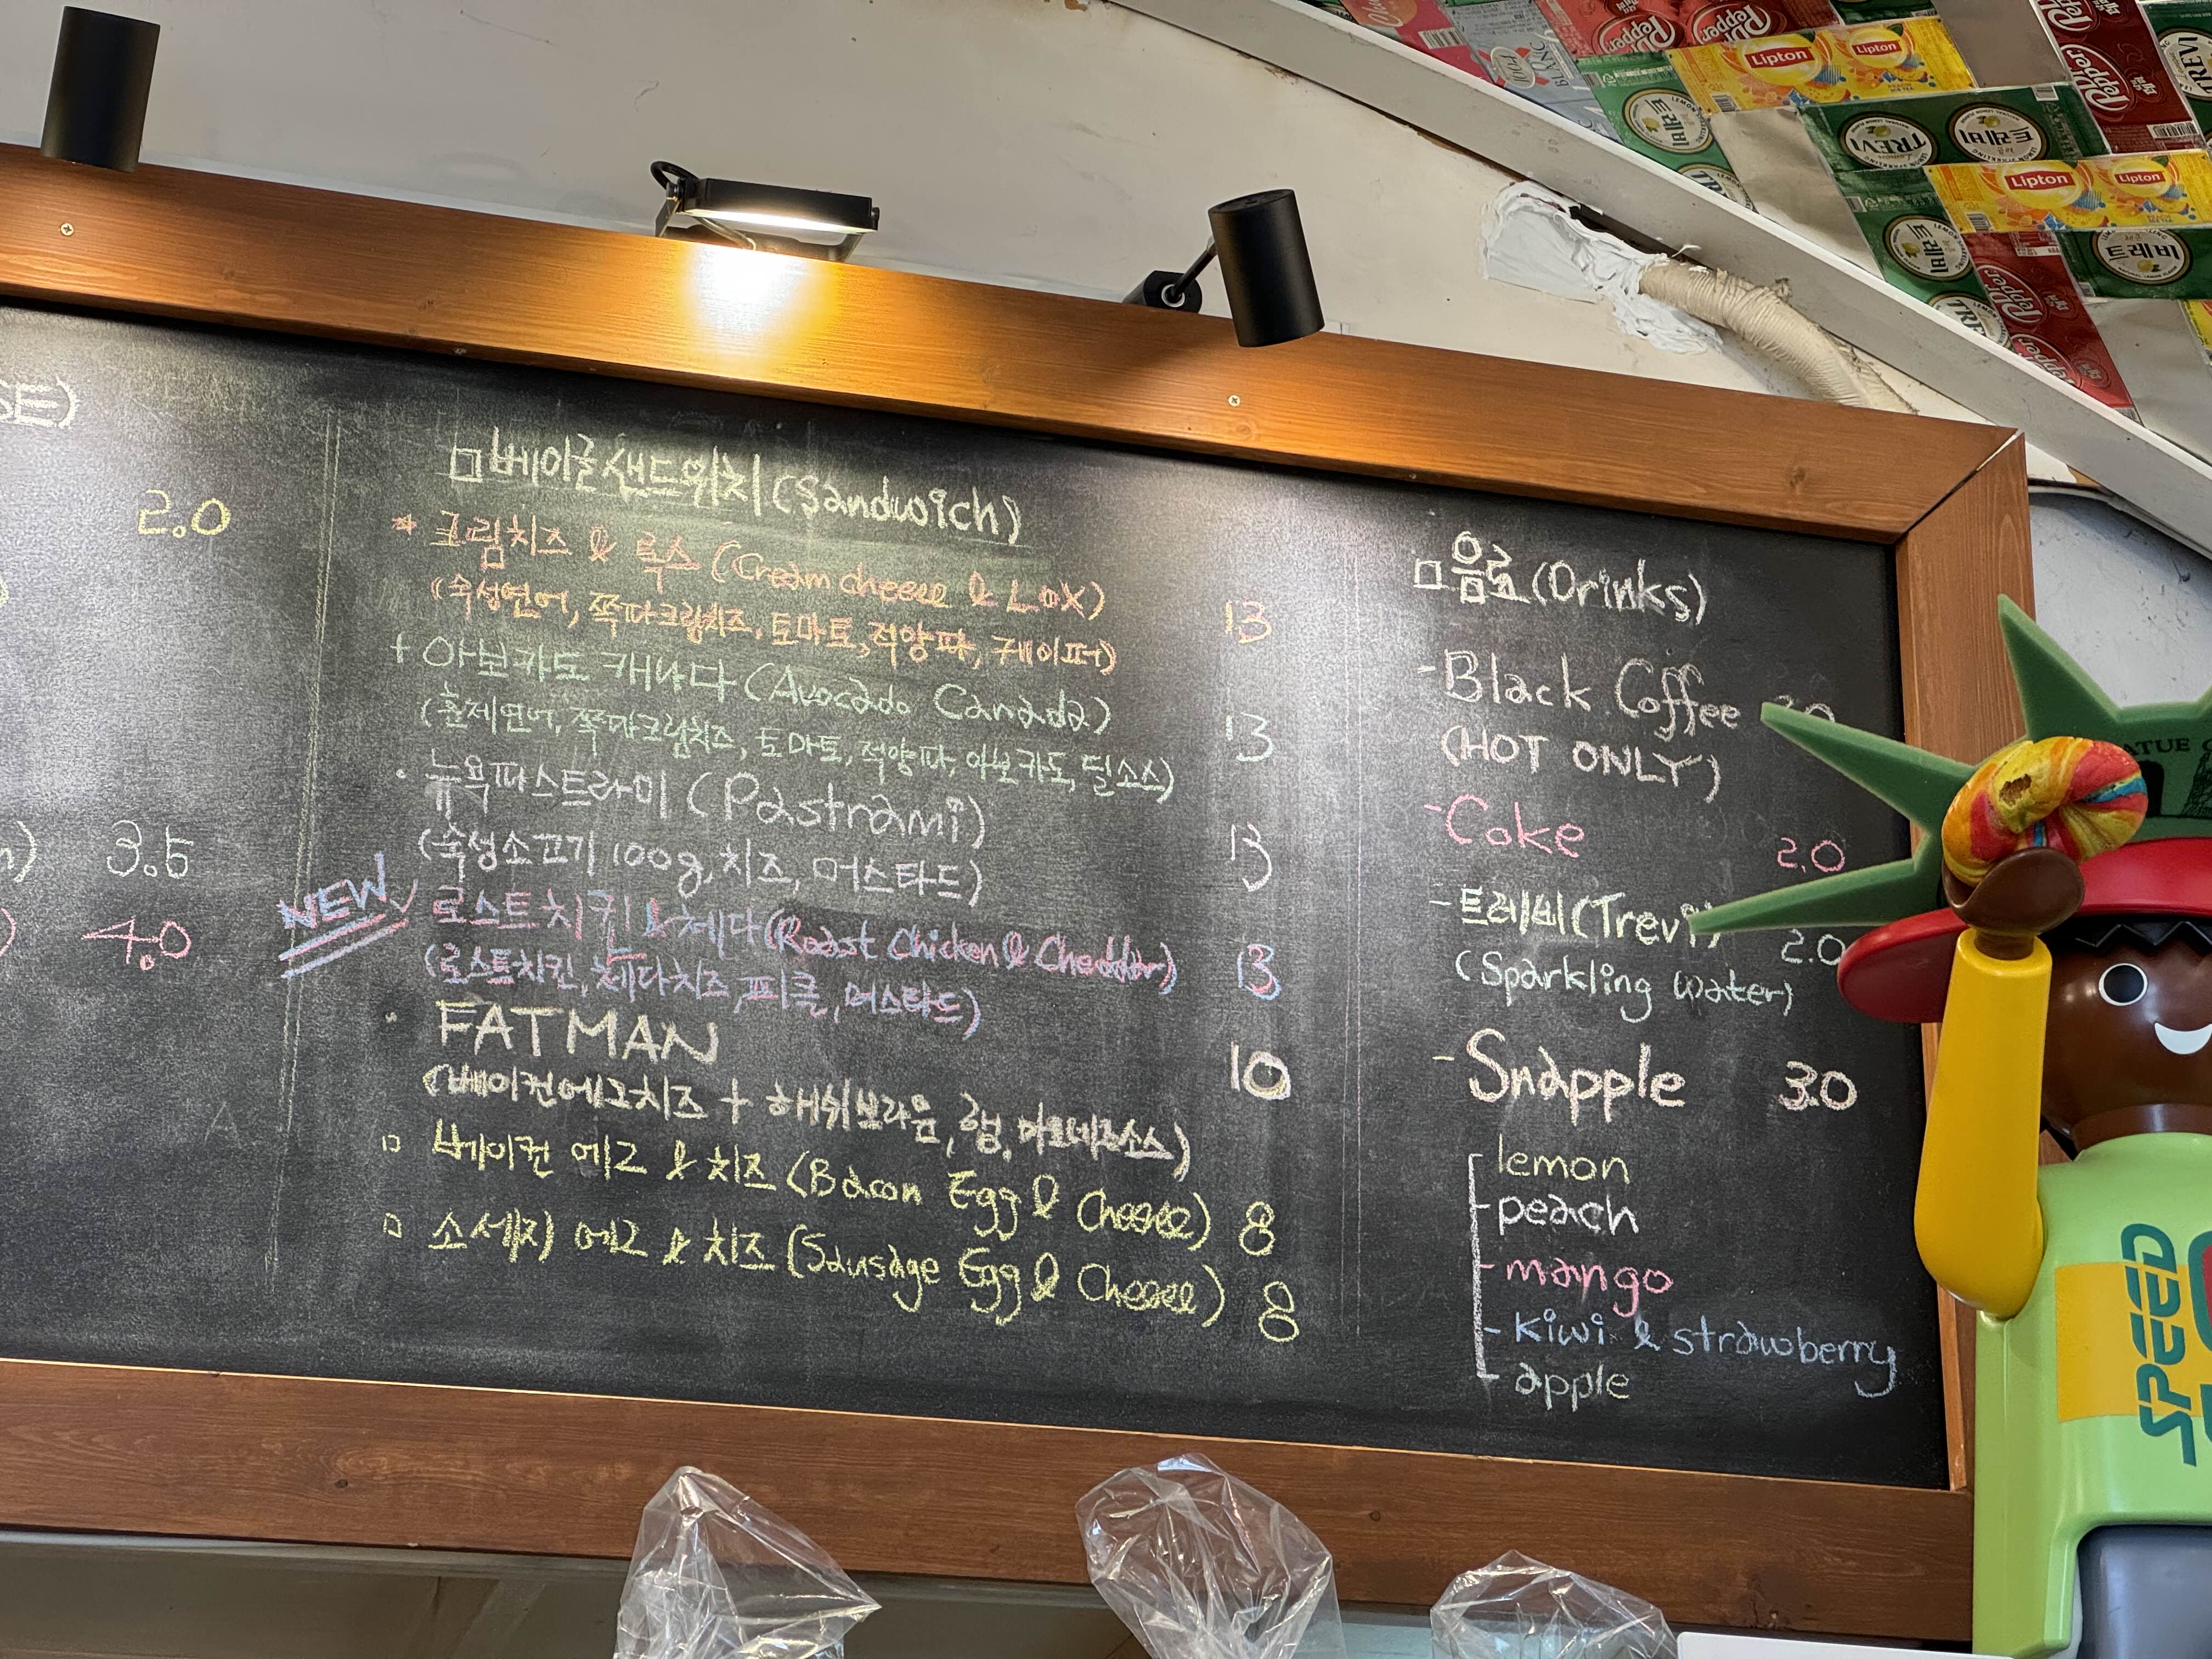 SE)
2.0
3.5
4.0
□베이글샌드위치(Sandwich)
* 크림치즈 & 록스 (Cream cheese & LOX)
(숙성연어, 쪽파크림치즈, 토마토, 적양파, 케이퍼) 13
+ 아보카도 캐나다 (Avocado Canada)
(훈제연어, 쪽파크림치즈, 토마토, 적양파, 아보카도, 딜소스) 13
· 뉴욕파스트라미 (Pastrami)
(숙성소고기 100g, 치즈, 머스타드) 13
NEW 로스트치킨 & 체다 (Roast Chicken & Cheddar)
(로스트치킨, 체다치즈, 피클, 머스타드) 13
· FATMAN
(베이컨에그치즈 + 해쉬브라운, 햄, 마요네즈소스) 10
□ 베이컨 에그 & 치즈 (Bacon Egg & Cheese) 8
□ 소세지 에그 & 치즈 (Sausage Egg & Cheese) 8
□음료(Drinks)
- Black Coffee
(HOT ONLY)
- Coke 2.0
- 트레비(Trevi) 2.0
(Sparkling water)
- Snapple 3.0
- lemon
- peach
- mango
- kiwi & strawberry
- apple
Dr Pepper
Lipton
Lipton
트레비
TREVI
트레비
Lipton
Lipton
트레비
트레비
Dr Pepper
SPEED